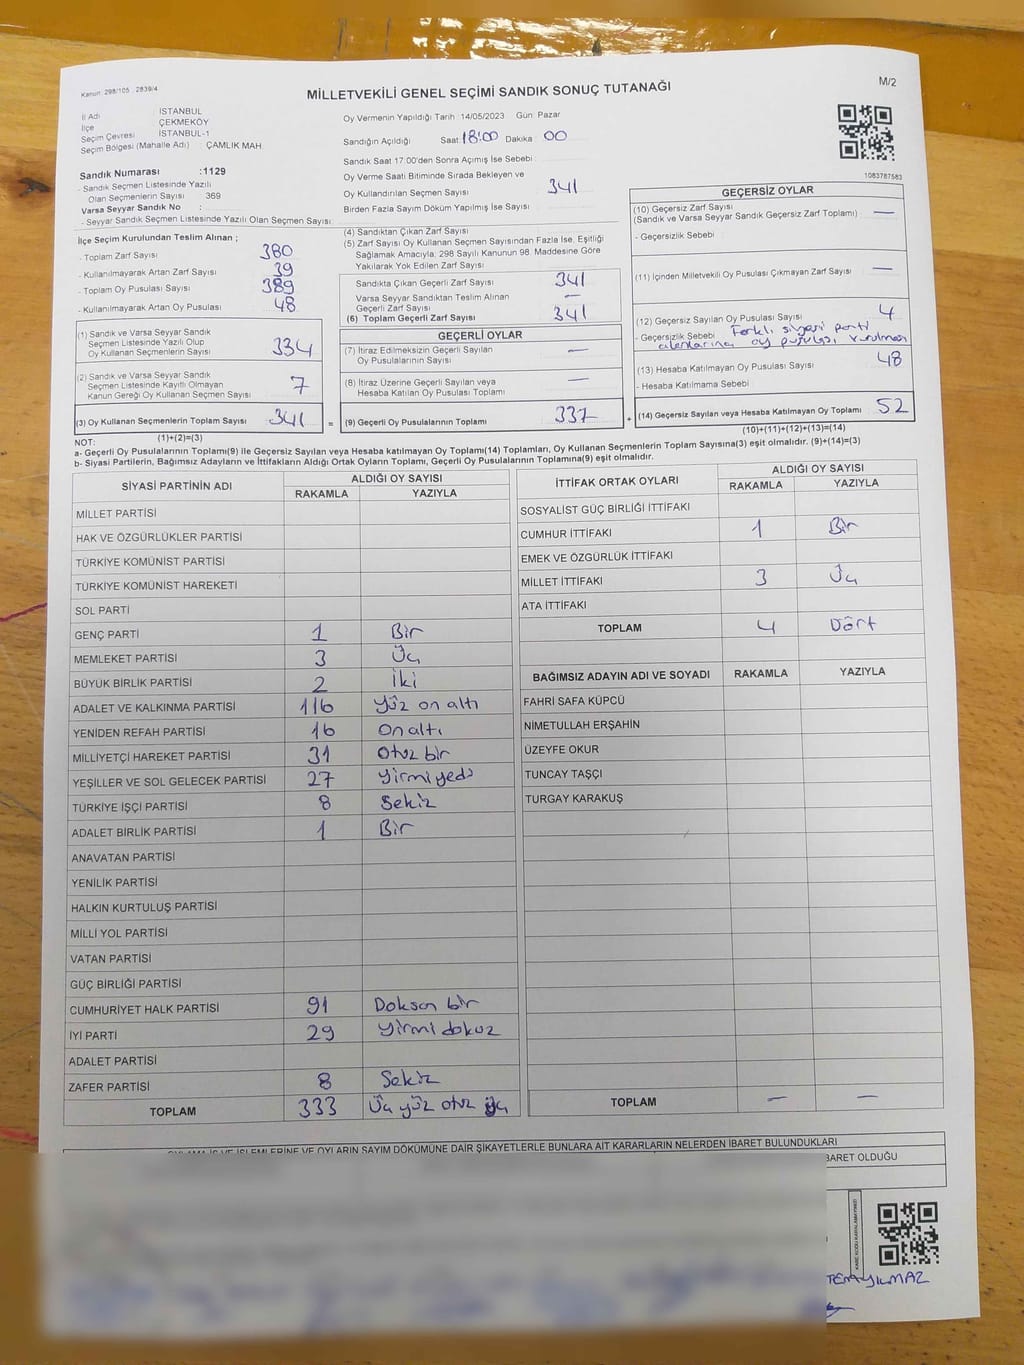 Kanun: 298/105, 2839/4
MİLLETVEKİLİ GENEL SEÇİMİ SANDIK SONUÇ TUTANAĞI
M/2
İl Adı : İSTANBUL
İlçe : ÇEKMEKÖY
Seçim Çevresi : İSTANBUL-1
Seçim Bölgesi (Mahalle Adı) : ÇAMLIK MAH.
Sandık Numarası :1129
- Sandık Seçmen Listesinde Yazılı
Olan Seçmenlerin Sayısı : 369
Varsa Seyyar Sandık No :
- Seyyar Sandık Seçmen Listesinde Yazılı Olan Seçmen Sayısı:
Oy Vermenin Yapıldığı Tarih : 14/05/2023 Gün: Pazar
Sandığın Açıldığı Saat: 18:00 Dakika: 00
Sandık Saat 17:00'den Sonra Açımış İse Sebebi :
Oy Verme Saati Bitiminde Sırada Bekleyen ve
Oy Kullandırılan Seçmen Sayısı : 341
Birden Fazla Sayım Döküm Yapılmış İse Sayısı :
1083787583
İlçe Seçim Kurulundan Teslim Alınan ;
- Toplam Zarf Sayısı : 380
- Kullanılmayarak Artan Zarf Sayısı : 39
- Toplam Oy Pusulası Sayısı : 389
- Kullanılmayarak Artan Oy Pusulası : 48
(1) Sandık ve Varsa Seyyar Sandık
Seçmen Listesinde Yazılı Olup
Oy Kullanan Seçmenlerin Sayısı : 334
(2) Sandık ve Varsa Seyyar Sandık
Seçmen Listesinde Kayıtlı Olmayan
Kanun Gereği Oy Kullanan Seçmen Sayısı : 7
(3) Oy Kullanan Seçmenlerin Toplam Sayısı : 341
(1)+(2)=(3)
(4) Sandıktan Çıkan Zarf Sayısı
(5) Zarf Sayısı Oy Kullanan Seçmen Sayısından Fazla İse, Eşitliği
Sağlamak Amacıyla; 298 Sayılı Kanunun 98. Maddesine Göre
Yakılarak Yok Edilen Zarf Sayısı :
Sandıkta Çıkan Geçerli Zarf Sayısı : 341
Varsa Seyyar Sandıktan Teslim Alınan
Geçerli Zarf Sayısı : —
(6) Toplam Geçerli Zarf Sayısı : 341
GEÇERLİ OYLAR
(7) İtiraz Edilmeksizin Geçerli Sayılan
Oy Pusulalarının Sayısı : —
(8) İtiraz Üzerine Geçerli Sayılan veya
Hesaba Katılan Oy Pusulası Toplamı : —
= (9) Geçerli Oy Pusulalarının Toplamı : 337
GEÇERSİZ OYLAR
(10) Geçersiz Zarf Sayısı : —
(Sandık ve Varsa Seyyar Sandık Geçersiz Zarf Toplamı)
- Geçersizlik Sebebi :
(11) İçinden Milletvekili Oy Pusulası Çıkmayan Zarf Sayısı : —
(12) Geçersiz Sayılan Oy Pusulası Sayısı : 4
- Geçersizlik Sebebi : Farklı siyasi parti
alanlarına oy pusulası vurulması
(13) Hesaba Katılmayan Oy Pusulası Sayısı : 48
- Hesaba Katılmama Sebebi :
+ (14) Geçersiz Sayılan veya Hesaba Katılmayan Oy Toplamı : 52
(10)+(11)+(12)+(13)=(14)
NOT:
a- Geçerli Oy Pusulalarının Toplamı(9) ile Geçersiz Sayılan veya Hesaba katılmayan Oy Toplamı(14) Toplamları, Oy Kullanan Seçmenlerin Toplam Sayısına(3) eşit olmalıdır. (9)+(14)=(3)
b- Siyasi Partilerin, Bağımsız Adayların ve İttifakların Aldığı Ortak Oyların Toplamı, Geçerli Oy Pusulalarının Toplamına(9) eşit olmalıdır.
SİYASİ PARTİNİN ADI ALDIĞI OY SAYISI
RAKAMLA YAZIYLA
MİLLET PARTİSİ
HAK VE ÖZGÜRLÜKLER PARTİSİ
TÜRKİYE KOMÜNİST PARTİSİ
TÜRKİYE KOMÜNİST HAREKETİ
SOL PARTİ
GENÇ PARTİ 1 Bir
MEMLEKET PARTİSİ 3 Üç
BÜYÜK BİRLİK PARTİSİ 2 İki
ADALET VE KALKINMA PARTİSİ 116 Yüz on altı
YENİDEN REFAH PARTİSİ 16 On altı
MİLLİYETÇİ HAREKET PARTİSİ 31 Otuz bir
YEŞİLLER VE SOL GELECEK PARTİSİ 27 Yirmi yedi
TÜRKİYE İŞÇİ PARTİSİ 8 Sekiz
ADALET BİRLİK PARTİSİ 1 Bir
ANAVATAN PARTİSİ
YENİLİK PARTİSİ
HALKIN KURTULUŞ PARTİSİ
MİLLİ YOL PARTİSİ
VATAN PARTİSİ
GÜÇ BİRLİĞİ PARTİSİ
CUMHURİYET HALK PARTİSİ 91 Doksan bir
İYİ PARTİ 29 Yirmi dokuz
ADALET PARTİSİ
ZAFER PARTİSİ 8 Sekiz
TOPLAM 333 Üç yüz otuz üç
İTTİFAK ORTAK OYLARI ALDIĞI OY SAYISI
RAKAMLA YAZIYLA
SOSYALİST GÜÇ BİRLİĞİ İTTİFAKI
CUMHUR İTTİFAKI 1 Bir
EMEK VE ÖZGÜRLÜK İTTİFAKI
MİLLET İTTİFAKI 3 Üç
ATA İTTİFAKI
TOPLAM 4 Dört
BAĞIMSIZ ADAYIN ADI VE SOYADI RAKAMLA YAZIYLA
FAHRİ SAFA KÜPCÜ
NİMETULLAH ERŞAHİN
ÜZEYFE OKUR
TUNCAY TAŞÇI
TURGAY KARAKUŞ
TOPLAM — —
OYLAMA İŞ VE İŞLEMLERİNE VE OYLARIN SAYIM DÖKÜMÜNE DAİR ŞİKAYETLERLE BUNLARA AİT KARARLARIN NELERDEN İBARET BULUNDUKLARI
BARET OLDUĞU
YILMAZ